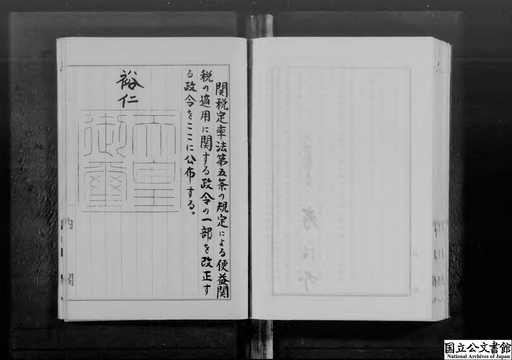 関税定率法第五条の規定による便益関
税の適用に関する政令の一部を改正す
る政令をここに公布する。
裕仁
天皇
御璽
国立公文書館
National Archives of Japan